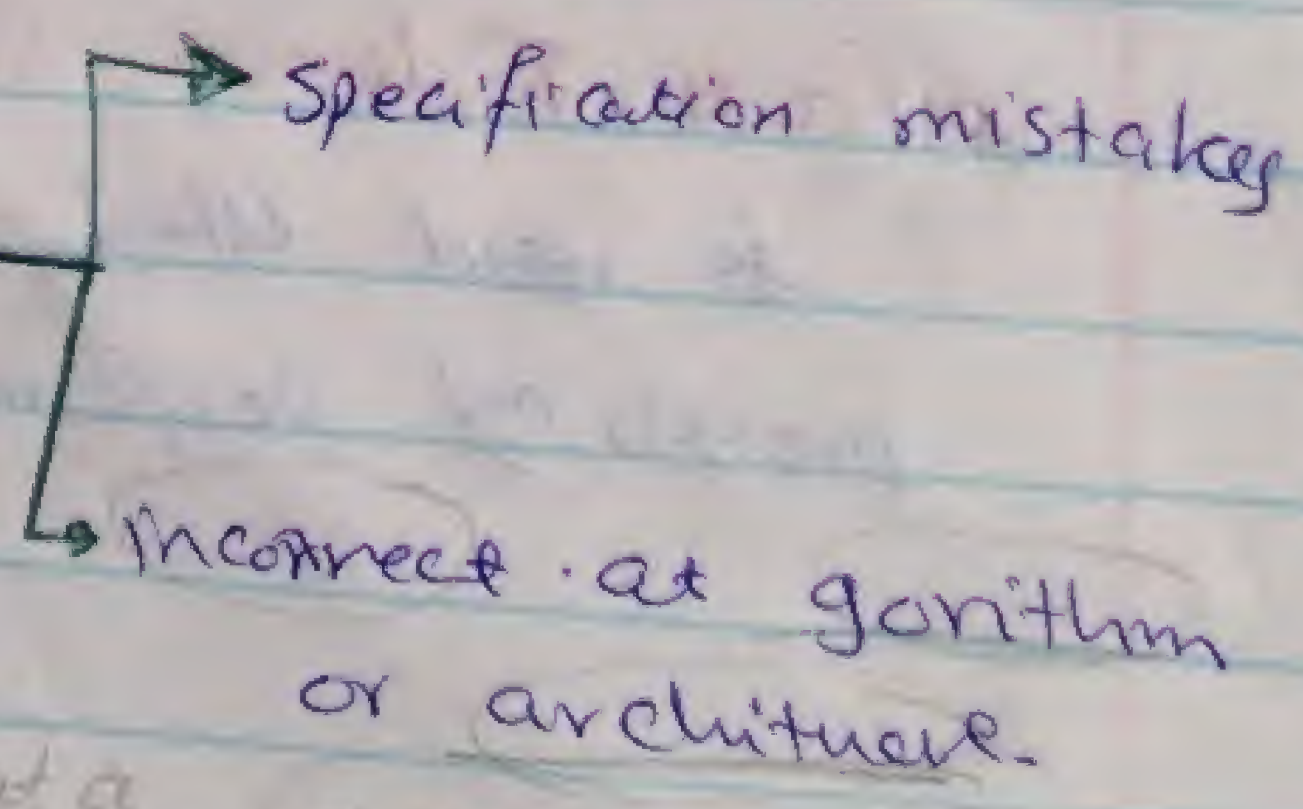 Specification mistakes
incorrect. at gorithm
or architucre.